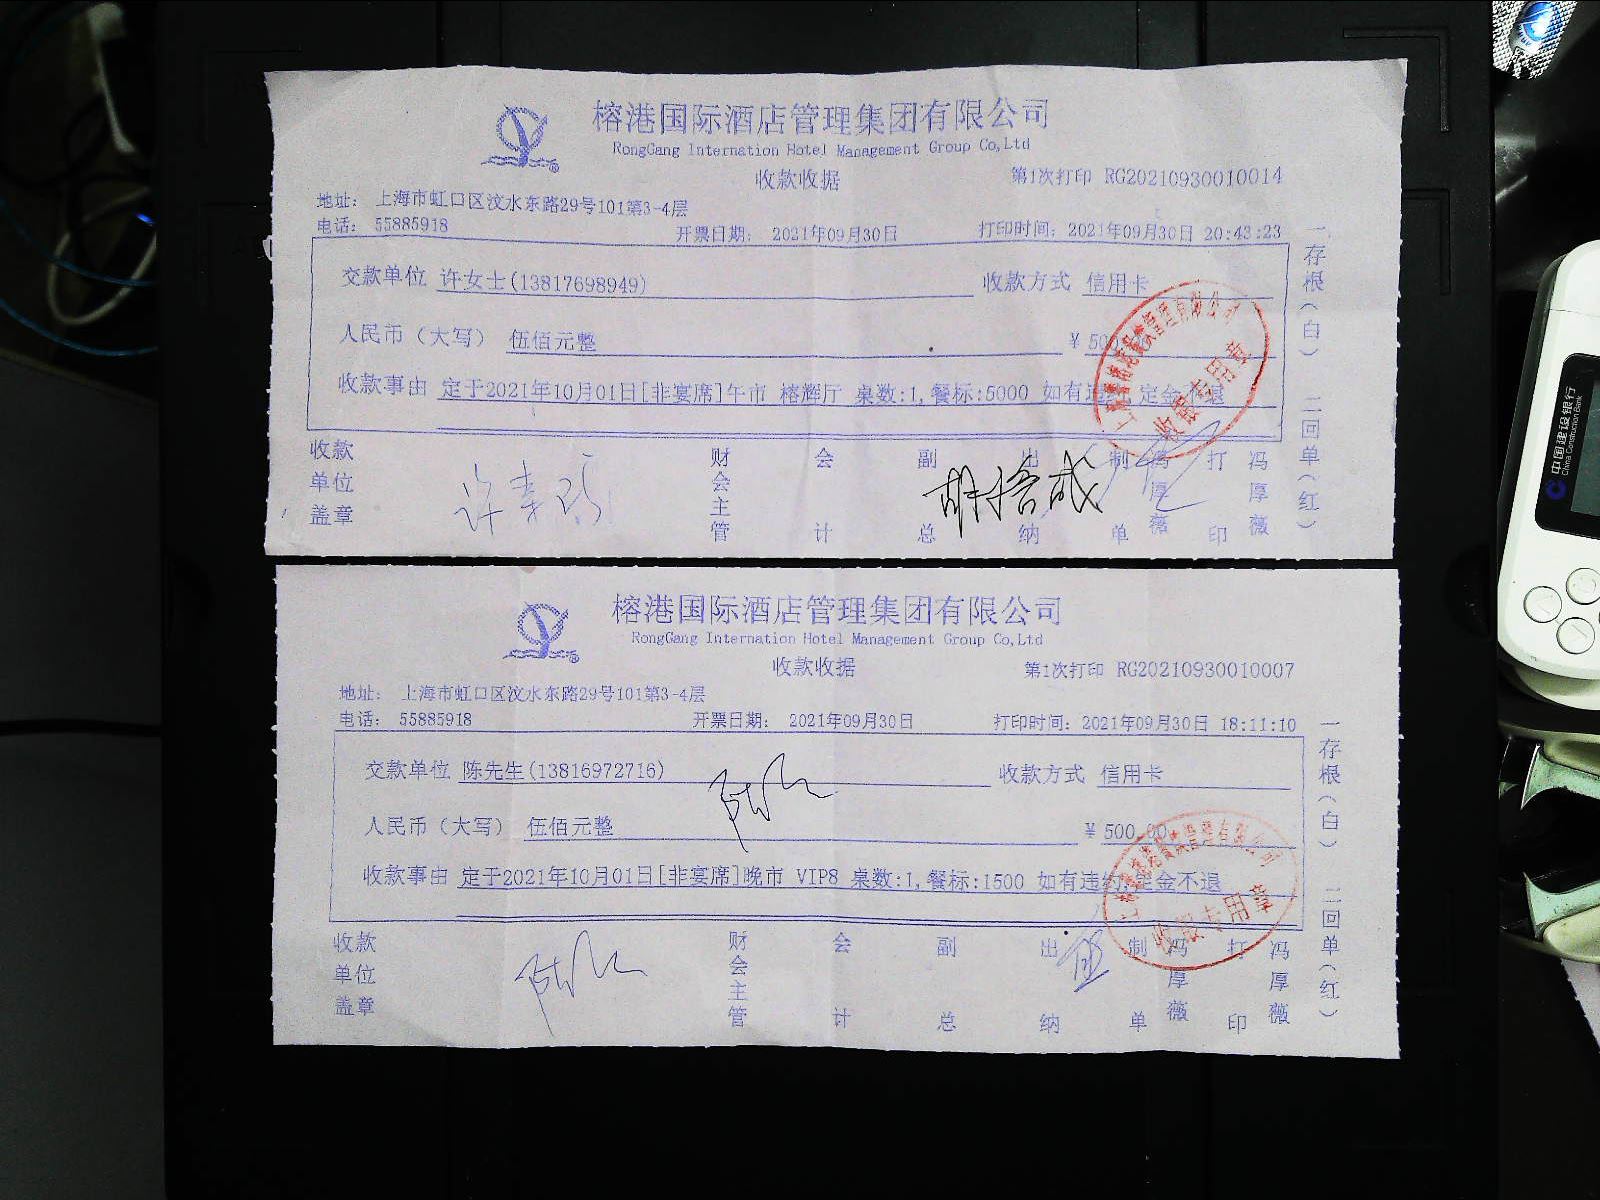 榕港国际酒店管理集团有限公司
RongGang Internation Hotel Management Group Co,Ltd
收款收据
第1次打印 RG20210930010014
地址： 上海市虹口区汶水东路29号101第3-4层
电话： 55885918
开票日期： 2021年09月30日
打印时间：2021年09月30日 20:43:23
交款单位 许女士(13817698949)
收款方式 信用卡
人民币（大写） 伍佰元整
￥50
收款事由 定于2021年10月01日[非宴席]午市 榕辉厅 桌数:1,餐标:5000 如有违 定金不退
收款单位盖章
财会主管
会计
副总
出纳
制单
冯厚薇
打印
冯厚薇
一存根（白） 二回单（红）
收银专用章
榕港国际酒店管理集团有限公司
RongGang Internation Hotel Management Group Co,Ltd
收款收据
第1次打印 RG20210930010007
地址： 上海市虹口区汶水东路29号101第3-4层
电话： 55885918
开票日期： 2021年09月30日
打印时间：2021年09月30日 18:11:10
交款单位 陈先生(13816972716)
收款方式 信用卡
人民币（大写） 伍佰元整
￥500.00
收款事由 定于2021年10月01日[非宴席]晚市 VIP8 桌数:1,餐标:1500 如有违约,定金不退
收款单位盖章
财会主管
会计
副总
出纳
制单
冯厚薇
打印
冯厚薇
一存根（白） 二回单（红）
收银专用章
中国建设银行
China Construction Bank